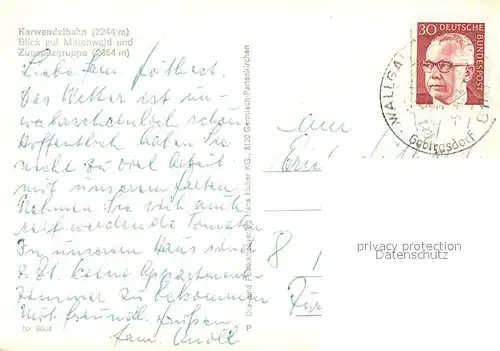 Karwendelbahn (2244 m)
Blick auf Mittenwald und
Zugspitzgruppe (2964 m)
Liebe Fam.
Das Wetter ist un-
wahrscheinlich schön
Hoffentlich haben Sie
nicht zu viel Arbeit
mit unserem Garten
Nehmen Sie sich auch
reif werdende Tomaten
In unserem Haus sind
z. Zt. keine Appartement-
zimmer zu bekommen
Mit freundl. Grüßen
Fam.
Nr. 8664
Hans Huber KG., 8100 Garmisch-Partenkirchen
P
30 DEUTSCHE BUNDESPOST
WALLGAU
Gebirgsdorf
An
8
privacy protection
Datenschutz